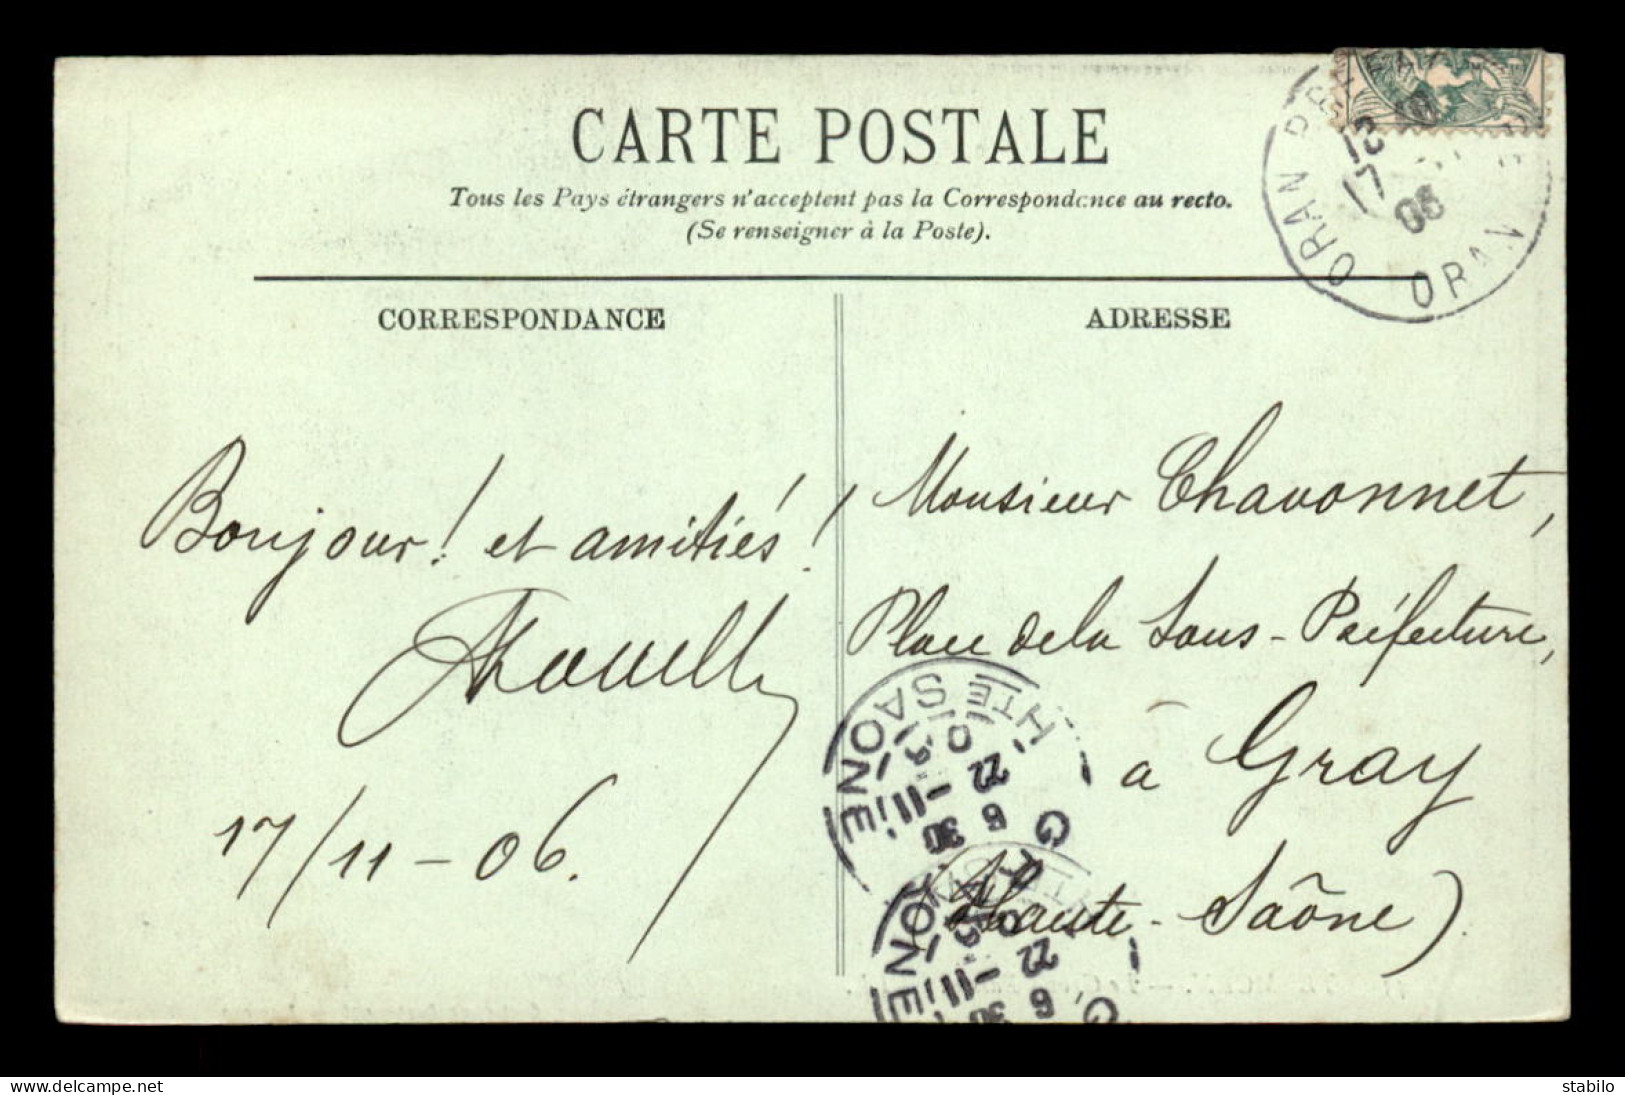 CARTE POSTALE
Tous les Pays étrangers n'acceptent pas la Correspondance au recto.
(Se renseigner à la Poste).
CORRESPONDANCE
ADRESSE
ORAN
17
06
ORAN
Bonjour! et amitiés!
17/11-06.
Monsieur Chavonnet,
Place de la Sous-Préfecture,
à Gray
(Haute-Saône)
HTE SAÔNE
22 -11
6 30
22 -11
6 30
delcampe.net
stabilo